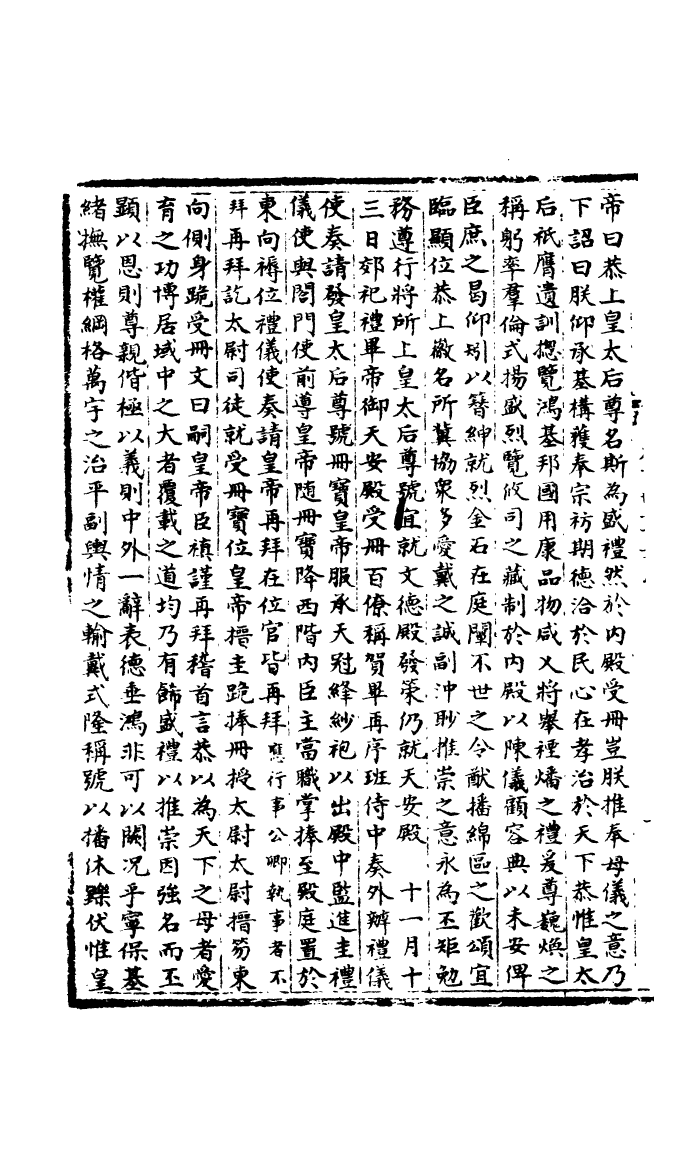 帝曰恭上皇太后尊名斯為盛禮然於内殿受冊豈朕推奉母儀之意乃
下詔曰朕仰承基構獲奉宗祊期德洽於民心在孝治於天下恭惟皇太
后祇膺遺訓揔覽鴻基邦國用康品物咸乂將舉禋燔之禮爰尊巍煥之
稱躬率羣倫式揚盛烈覽攸司之藏制於内殿以陳儀顧容典以未安俾
臣庶之曷仰矧以簪紳就烈金石在庭闡不世之令猷播綿區之歡頌宜
臨顯位恭上徽名所冀協衆多愛戴之誠副沖眇推崇之意永為丕矩勉
務遵行將所上皇太后尊號宜就文德殿發策仍就天安殿 十一月十
三日郊祀禮畢帝御天安殿受冊百僚稱賀畢再序班侍中奏外辦禮儀
使奏請發皇太后尊號冊寶皇帝服承天冠絳紗袍以出殿中監進圭禮
儀使與閤門使前導皇帝随冊寶降西階内臣主當職掌捧至殿庭置於
東向褥位禮儀使奏請皇帝再拜在位官皆再拜應行事公卿執事者不
拜再拜訖太尉司徒就受冊寶位皇帝搢圭跪捧冊授太尉太尉搢笏東
向側身跪受冊文曰嗣皇帝臣禎謹再拜稽首言恭以為天下之母者愛
育之功博居域中之大者覆載之道均乃有飾盛禮以推崇因強名而丕
顯以恩則尊親偕極以義則中外一辭表德垂鴻非可以闕况乎寧保基
緒撫覽權綱格萬宇之治平副輿情之輸戴式隆稱號以播休鑠伏惟皇